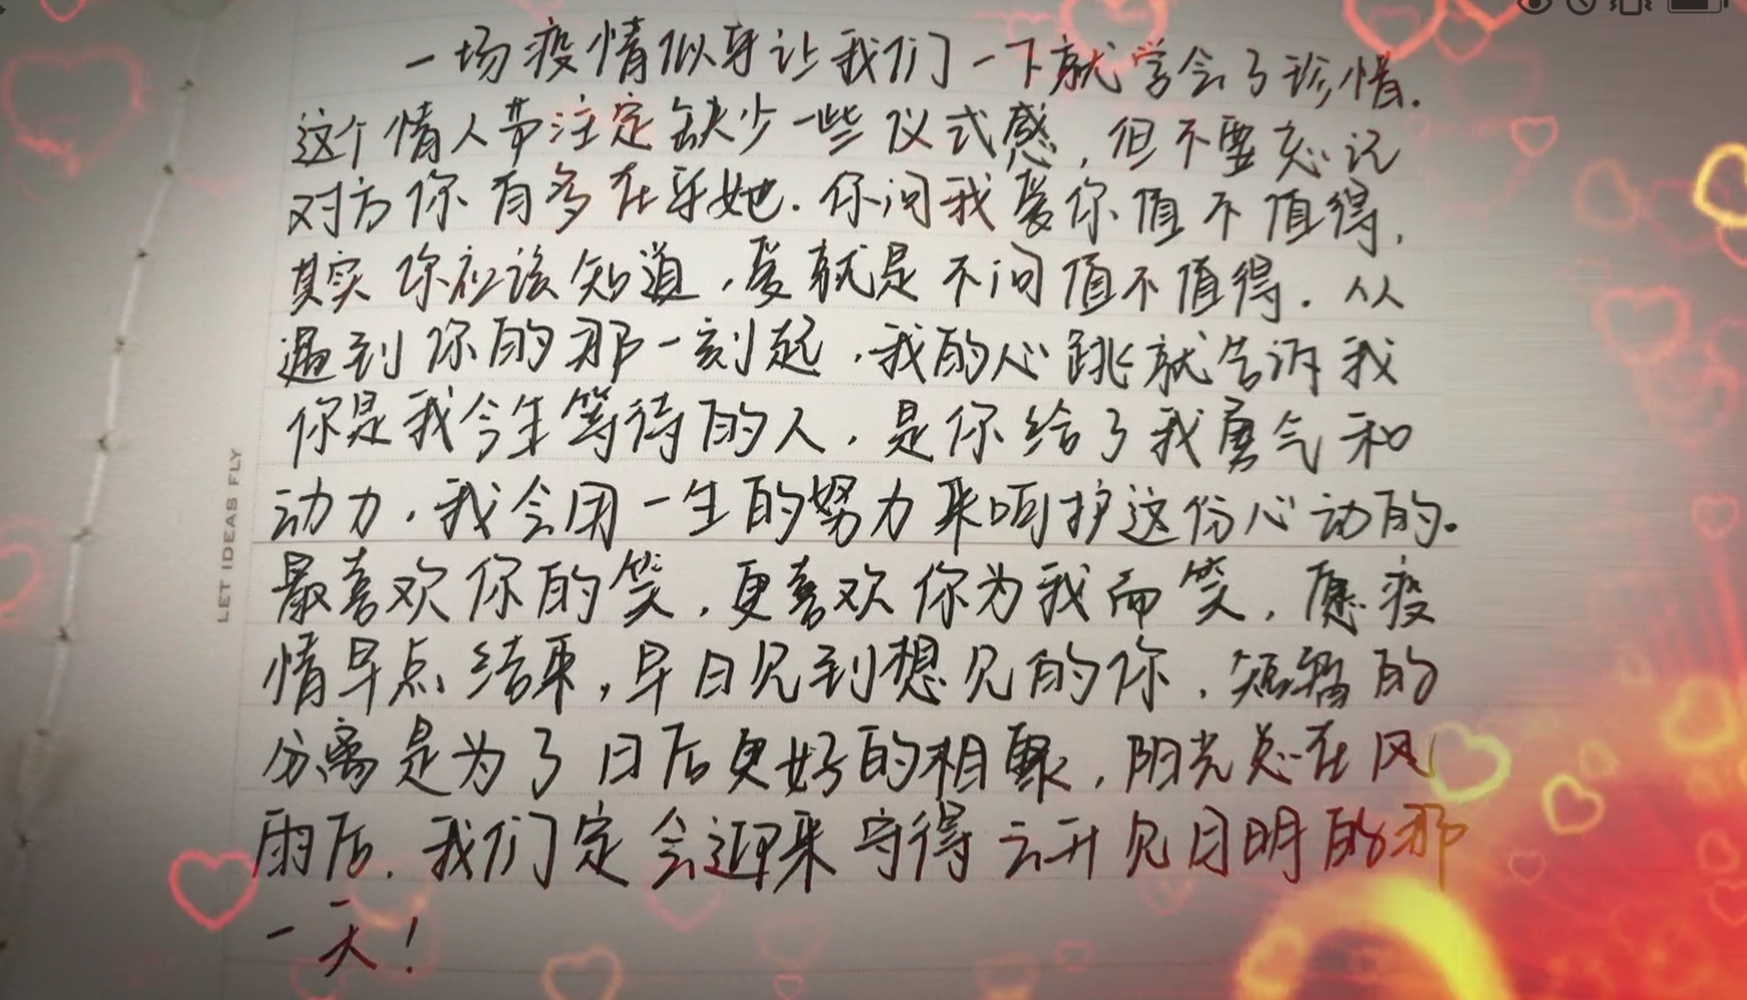 一场疫情似乎让我们一下就学会了珍惜.
这个情人节注定缺少一些仪式感,但不要忘记
对方你有多在乎她.你问我爱你值不值得,
其实你应该知道,爱就是不问值不值得.从
遇到你的那一刻起,我的心跳就告诉我
你是我今生等待的人,是你给了我勇气和
动力,我会用一生的努力来呵护这份心动的。
最喜欢你的笑,更喜欢你为我而笑,愿疫
情早点结束,早日见到想见的你.短暂的
分离是为了日后更好的相聚,阳光总在风
雨后.我们定会迎来守得云开见月明的那
一天!
LET IDEAS FLY